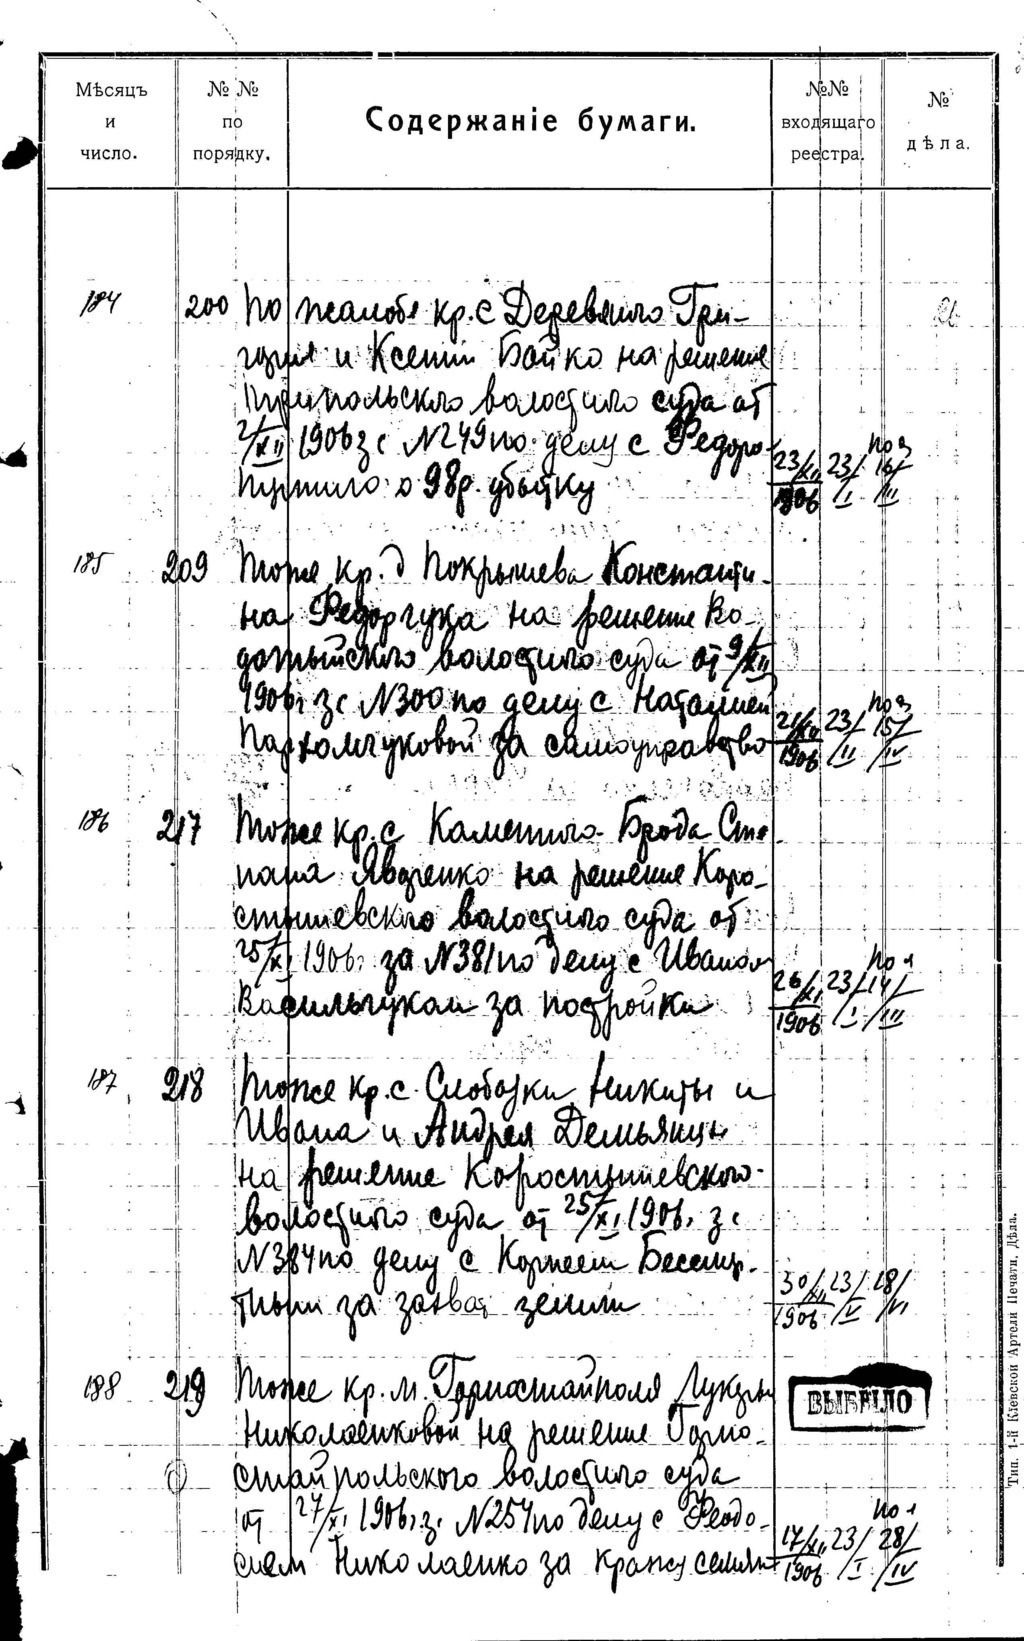 Мѣсяцъ и число.
№ № по порядку.
Содержаніе бумаги.
№№ входящаго реестра.
№ дѣла.
184 200 По жалобе кр. с Деревянно Гри-
гория и Ксении Бойко на решение
волостного суда от
2/XII 1906 з с N249 по делу с Федоро
о 98р. убытку
23/XII 1906 23/I по 3 16/III
185 209 Тоже кр. д Покрышева Константи-
на Федорчука на решение Во-
дотыйского волостного суда от 9/XII
1906г зс N300 по делу с Наталией
Пархомчуковой за самоуправство
21/XII 1906 23/II по 3 15/IV
186 217 Тоже кр. с Каменного-Брода Сте
пана Яворенко на решение Коро-
стышевского волостного суда от
25/XI 1906г за N381 по делу с Иваном
Васильчуком за постройки
26/XI 1906 23/I по 1 14/III
187 218 Тоже кр. с. Слободки Никиты и
Ивана и Андрея Демьянец
на решение Коростышевского
волостного суда от 25/XI 1906г зс
N384 по делу с Корнеем Бессмер-
тным за захват земли
30/XII 1906 23/V 28/VI
188 219 Тоже кр. м. Горностайполя Лукерьи
Николаенковой на решение Горно-
стайпольского волостного суда
от 27/XI 1906г з. N254 по делу с Феодо-
сием Николаенко за кражу семян
ВЫБЫЛО
17/XII 1906 23/I по 1 28/IV
Тип. 1-й Кіевской Артели Печати. Дѣла.